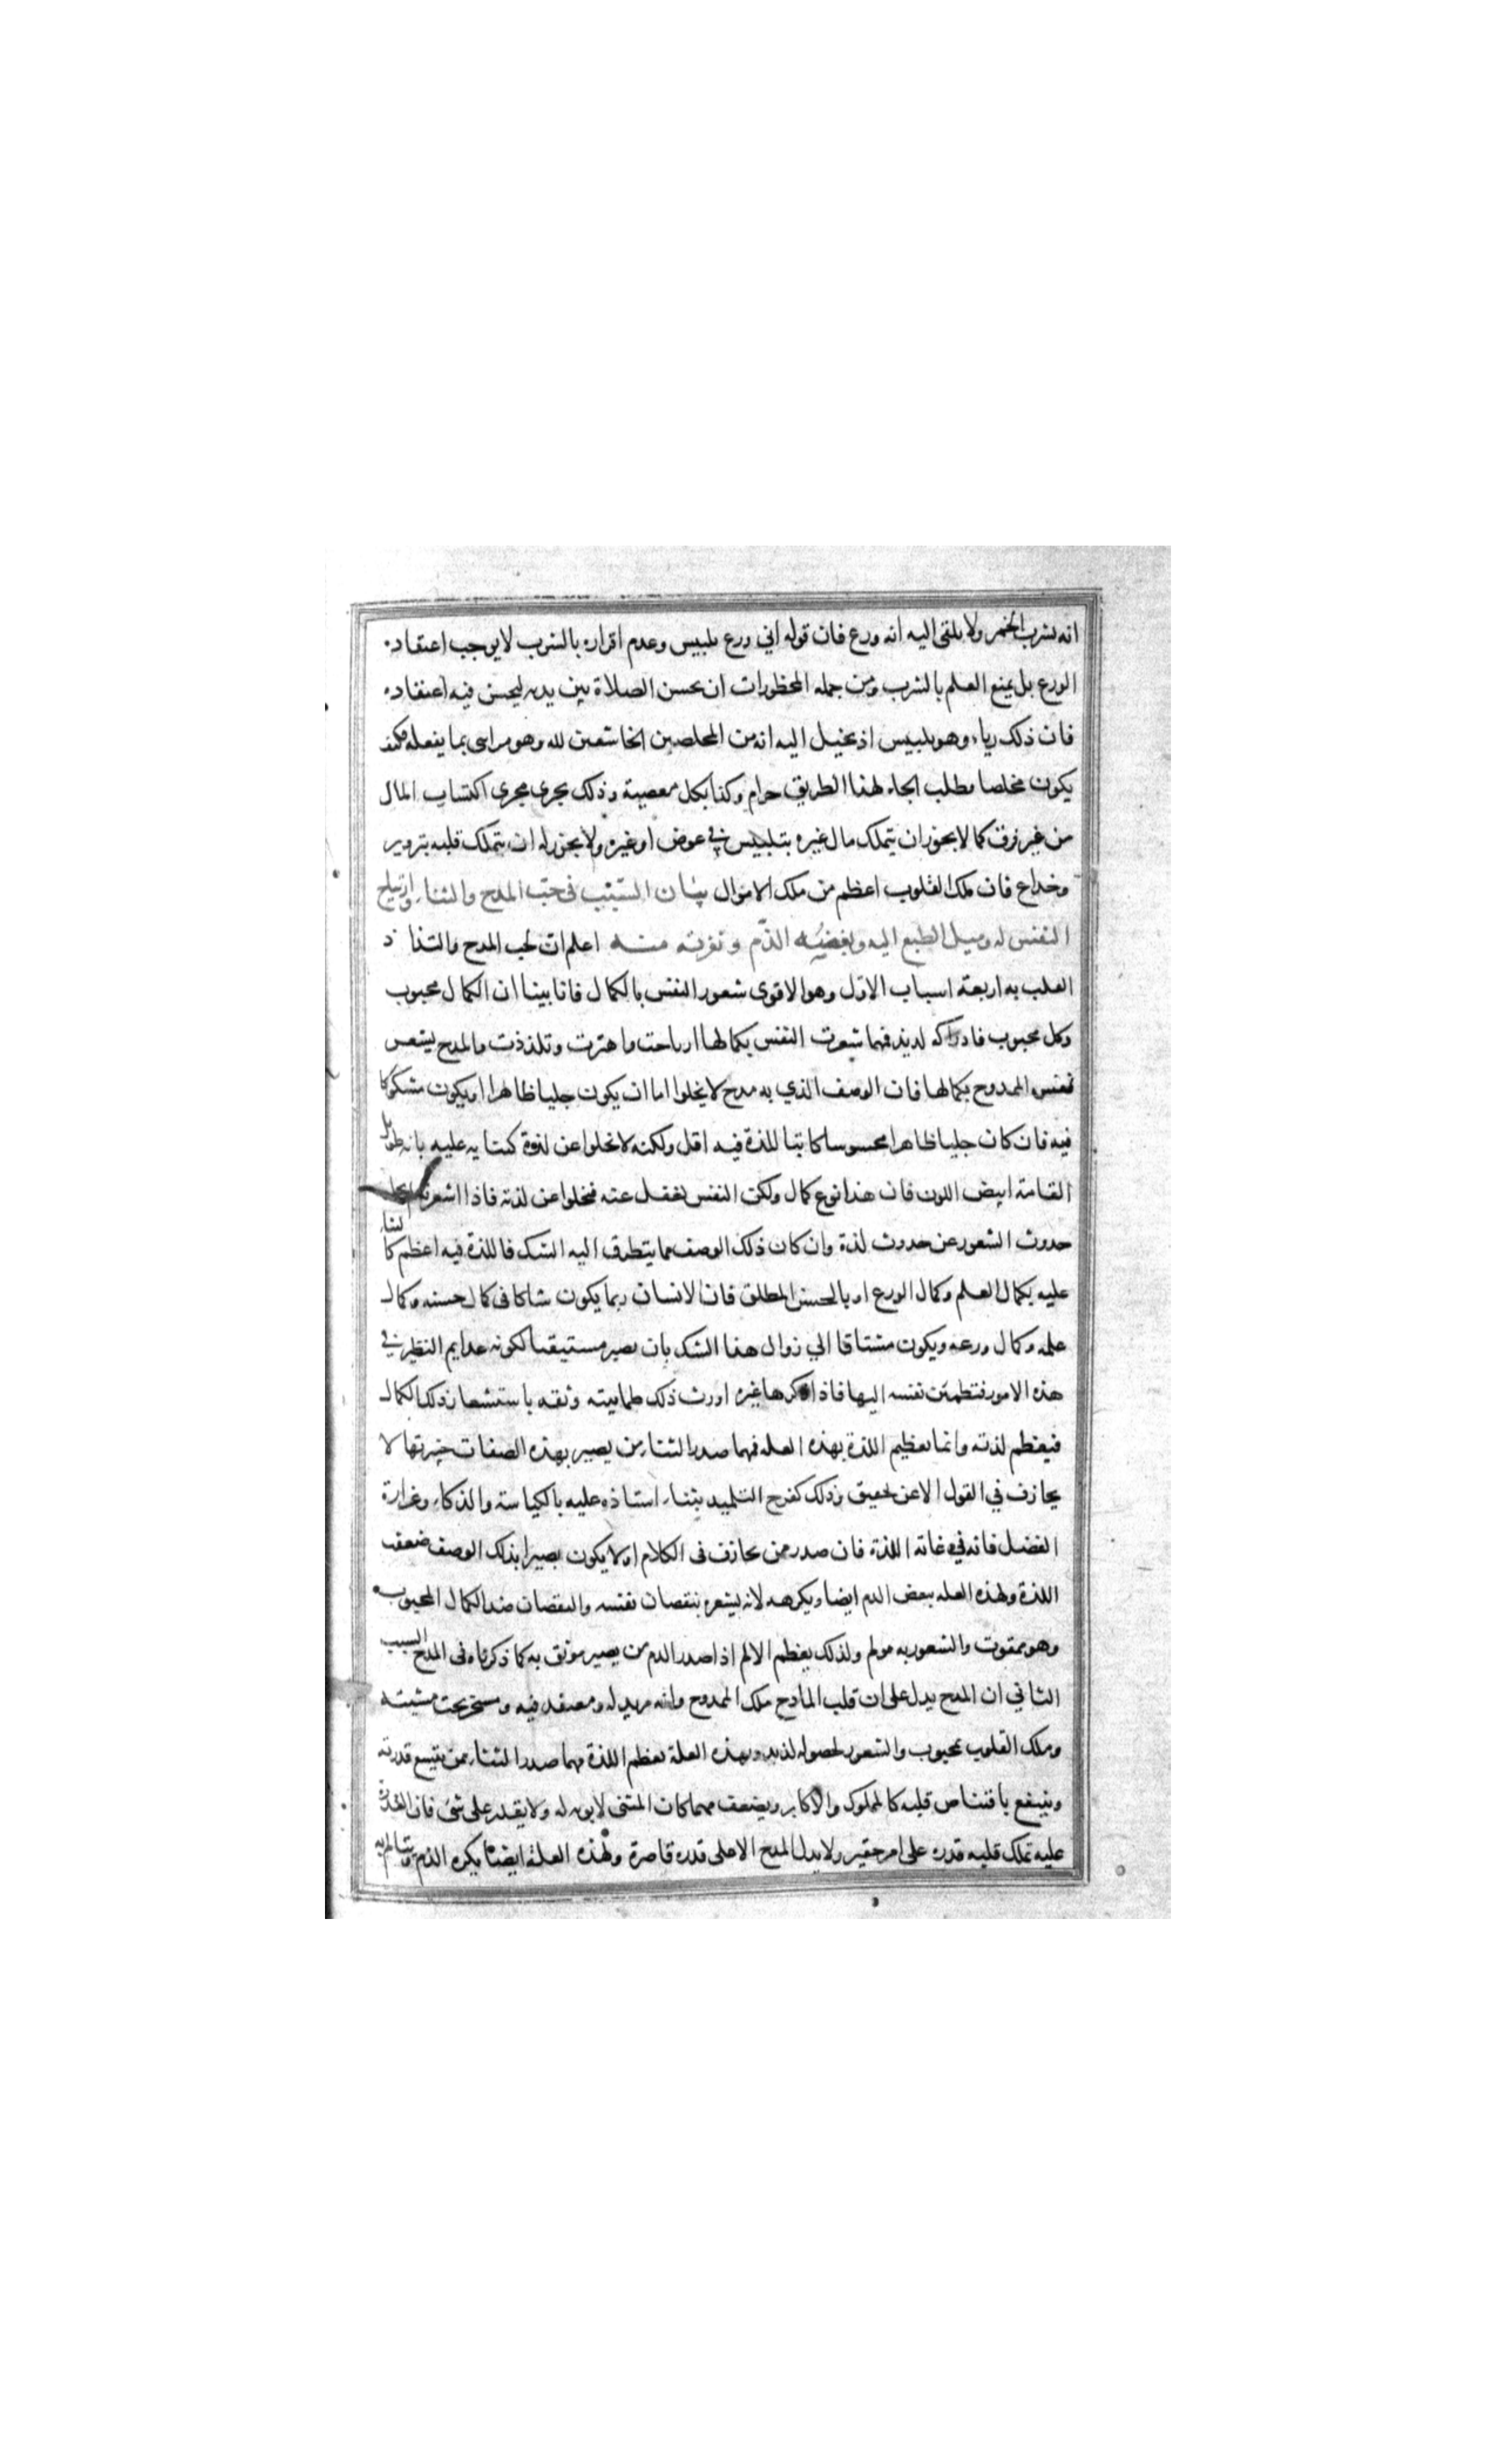 انه يشرب الخمر ولا يلقى اليه انه ورع فان قوله اني ورع تلبيس وعدم اقراره بالشرب لا يوجب اعتقاده
الورع بل يمنع العلم بالشرب ومن جمله المحظورات ان يحسن الصلاة بين يديه ليحسن فيه اعتقاده
فان ذلك رياء وهو تلبيس اذ يخيل اليه انه من المخلصين الخاشعين لله وهو مراى بما يفعله فكيف
يكون مخلصا فطلب الجاه لهذا الطريق حرام وكذا بكل معصية وذلك يجرى مجرى اكتساب المال
من غير فرق كما لا يجوز ان يتملك مال غيره بتلبيس في عوض او غيره ولا يجوز له ان يتملك قلبه بتزوير
وخداع فان ملك القلوب اعظم من ملك الاموال بيان السبب فى حب المدح والثناء وارتياح
النفس له وميل الطبع اليه وبغضه الذم ونفرته منه اعلم ان لحب المدح والتذاذ
القلب به اربعة اسباب الاول وهو الاقوى شعور النفس بالكمال فانا بينا ان الكمال محبوب
وكل محبوب فادراكه لذيذ فمهما شعرت النفس بكمالها ارتاحت واهتزت وتلذذت والمدح يشعر
نفس الممدوح بكمالها فان الوصف الذي به مدح لا يخلوا اما ان يكون جليا ظاهرا او يكون مشكوكا
فيه فان كان جليا ظاهرا محسوسا كانت اللذة فيه اقل ولكنه لا يخلوا عن لذة كثنايه عليه بانه طويل
القامة ابيض اللون فان هذا نوع كمال ولكن النفس تغفل عنه فتخلوا عن لذته فاذا اشعرته لم يخل
حدوث الشعور عن حدوث لذة وان كان ذلك الوصف مما يتطرق اليه الشك فاللذة فيه اعظم كالثناء
عليه بكمال العلم وكمال الورع او بالحسن المطلق فان الانسان ربما يكون شاكا فى كمال حسنه وكمال
علمه وكمال ورعه ويكون مشتاقا الي زوال هذا الشك بان يصير مستيقنا لكونه عدايم النظير في
هذه الامور فتطمئن نفسه اليها فاذا ذكرها غيره اورث ذلك طمانينة وثقه باستشعار ذلك الكمال
فيعظم لذته وانما تعظيم اللذة بهذه العله فمهما صدر الثناء من بصير بهذه الصفات خبير بها لا
يجازف في القول الا عن تحقيق وذلك كفرح التلميذ بثناء استاذه عليه بالكياسة والذكاء وغزارة
الفضل فانه في غاية اللذة فان صدر ممن يجازف فى الكلام او لا يكون بصيرا بذلك الوصف ضعفت
اللذة ولهذه العله يبغض الذم ايضا ويكرهه لانه يشعره بنقصان نفسه والنقصان ضد الكمال المحبوب
وهو ممقوت والشعور به مولم ولذلك يعظم الالم اذا صدر الذم من بصير موثق به كما ذكرناه فى المدح السبب
الثاني ان المدح يدل على ان قلب المادح ملك الممدوح وانه مريد له ومعتقد فيه ومسخر تحت مشيته
وملك القلوب محبوب والشعور بحصوله لذيذ وبهذه العلة تعظم اللذة مهما صدر الثناء ممن يتسع قدرته
وينتفع باقتناص قلبه كالملوك والاكابر ويضعف مهما كان المثنى لا يوبه له ولا يقدر على شئ فان القدرة
عليه تملك قلبه قدرة على امر حقير ولا يدل المدح الا على قدرة قاصرة ولهذه العلة ايضا يكره الذم ويتالم به